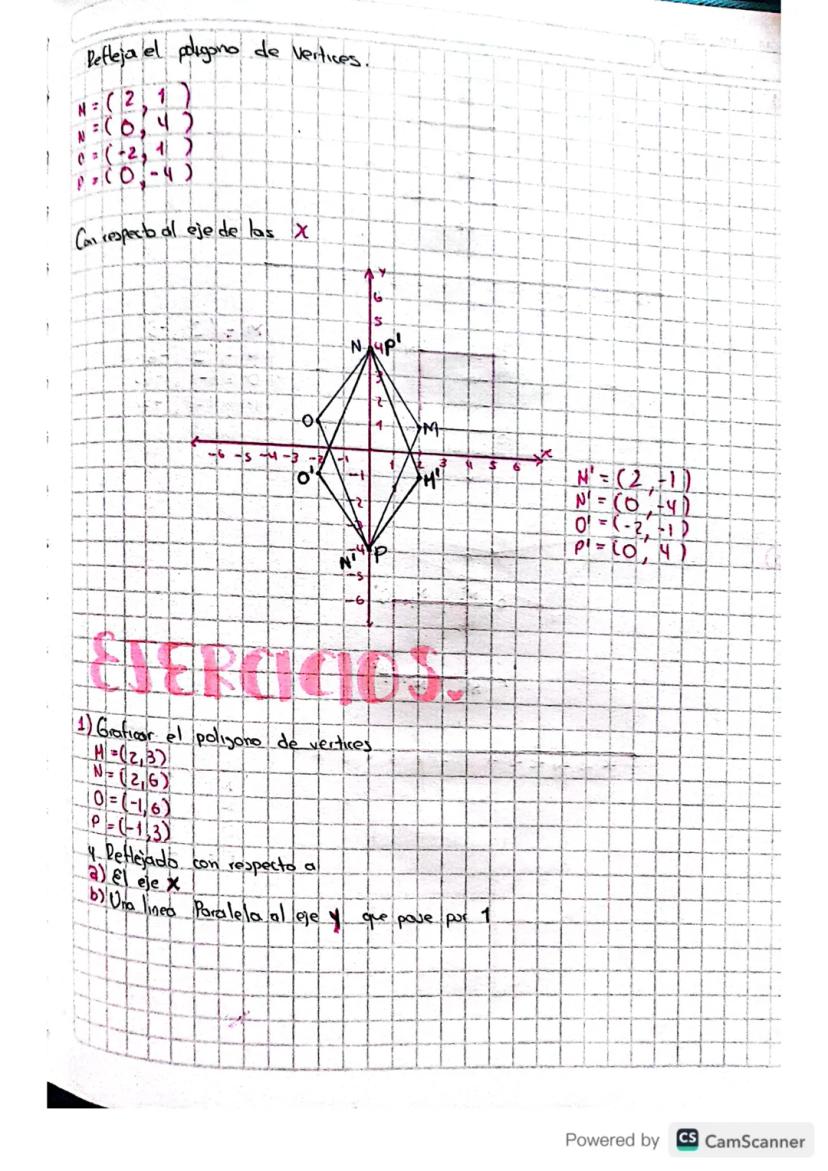 Refleja el poligono de vertices.
M = ( 2, 1 )
N = ( 0, 4 )
O = ( -2, 1 )
P = ( 0, -4 )
Con respecto al eje de las X
Y
6
5
N 4 P'
3
2
O 1 M
-6 -5 -4 -3 -2 -1 1 2 3 4 5 6 X
O' -1 M'
-2
-3
N' -4 P
-5
-6
M' = (2, -1)
N' = (0, -4)
O' = (-2, -1)
P' = (0, 4)
EJERCICIOS.
1) Graficar el poligono de vertices
M = (2,3)
N = (2,6)
O = (-1,6)
P = (-1,3)
y Reflejado con respecto a
a) El eje X
b) Una linea Paralela al eje y que pase por 1
Powered by CS CamScanner